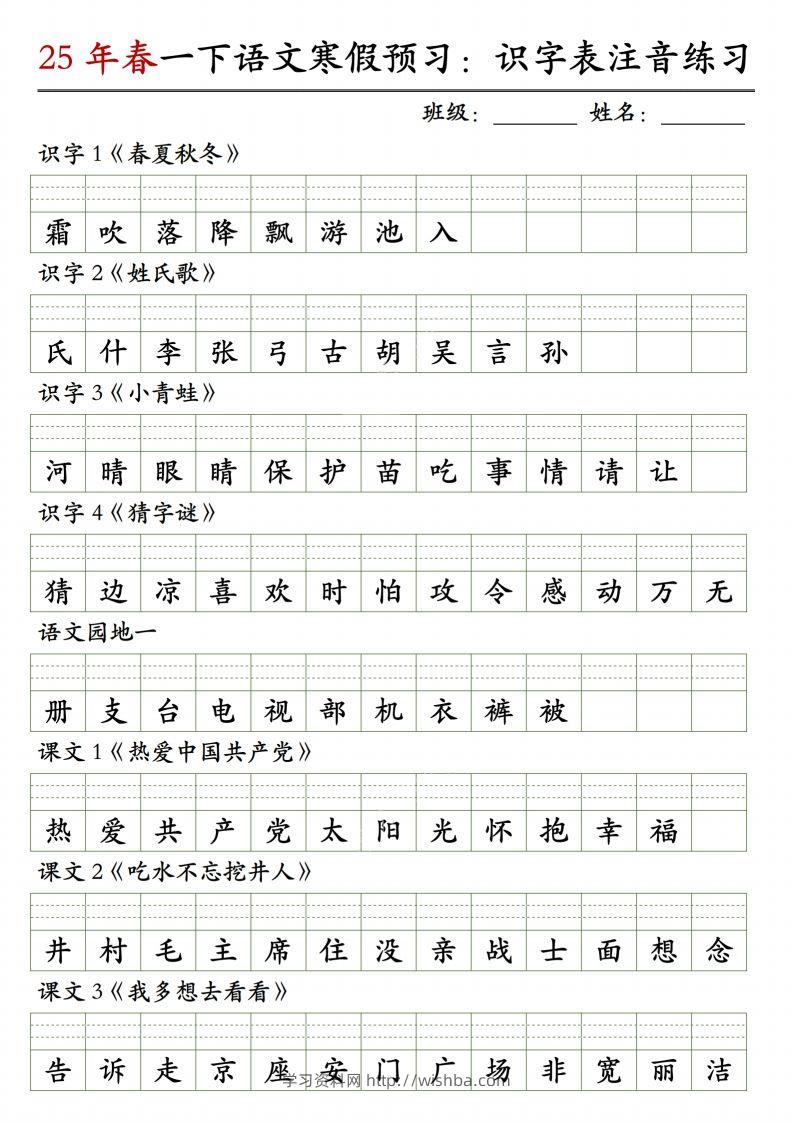 25 年春一下语文寒假预习：识字表注音练习
班级：________ 姓名：________
识字 1《春夏秋冬》
霜 吹 落 降 飘 游 池 入
识字 2《姓氏歌》
氏 什 李 张 弓 古 胡 吴 言 孙
识字 3《小青蛙》
河 晴 眼 睛 保 护 苗 吃 事 情 请 让
识字 4《猜字谜》
猜 边 凉 喜 欢 时 怕 攻 令 感 动 万 无
语文园地一
册 支 台 电 视 部 机 衣 裤 被
课文 1《热爱中国共产党》
热 爱 共 产 党 太 阳 光 怀 抱 幸 福
课文 2《吃水不忘挖井人》
井 村 毛 主 席 住 没 亲 战 士 面 想 念
课文 3《我多想去看看》
告 诉 走 京 座 安 门 广 场 非 宽 丽 洁
学习资料网 http://wishba.com/